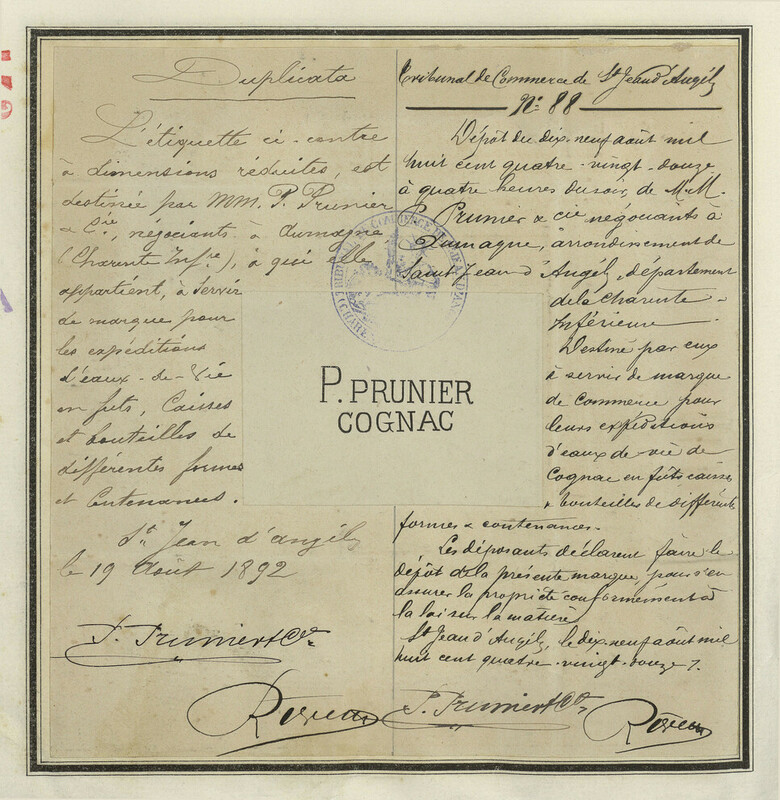 Duplicata
L'étiquette ci-contre
à dimensions réduites, est
destinée par MM. P. Prunier
& Cie, négociants à Aumagne
(Charente Infre), à qui elle
appartient, à servir
de marque pour
les expéditions
d'eaux-de-vie
en futs, Caisses
et bouteilles de
différentes formes
et Contenances.
St Jean d'Angély
le 19 Août 1892
P. Prunier & Cie
P. PRUNIER
COGNAC
Tribunal de Commerce de St Jean d'Angély
No. 88
Dépôt du dix-neuf août mil
huit cent quatre-vingt-douze
à quatre heures du soir, de M.M.
Prunier & cie négociants à
Aumagne, arrondissement de
Saint Jean d'Angély, département
de la Charente-
Inférieure
Destiné par eux
à servir de marque
de Commerce pour
leurs expéditions
d'eaux de vie de
Cognac en fûts caisses
& bouteilles de différentes
formes & contenances.
Les déposants déclarent faire le
dépôt de la présente marque, pour s'en
assurer la propriété conformément à
la loi sur la matière
St Jean d'Angély, le dix-neuf août mil
huit cent quatre-vingt-douze /.
P. Prunier & Cie